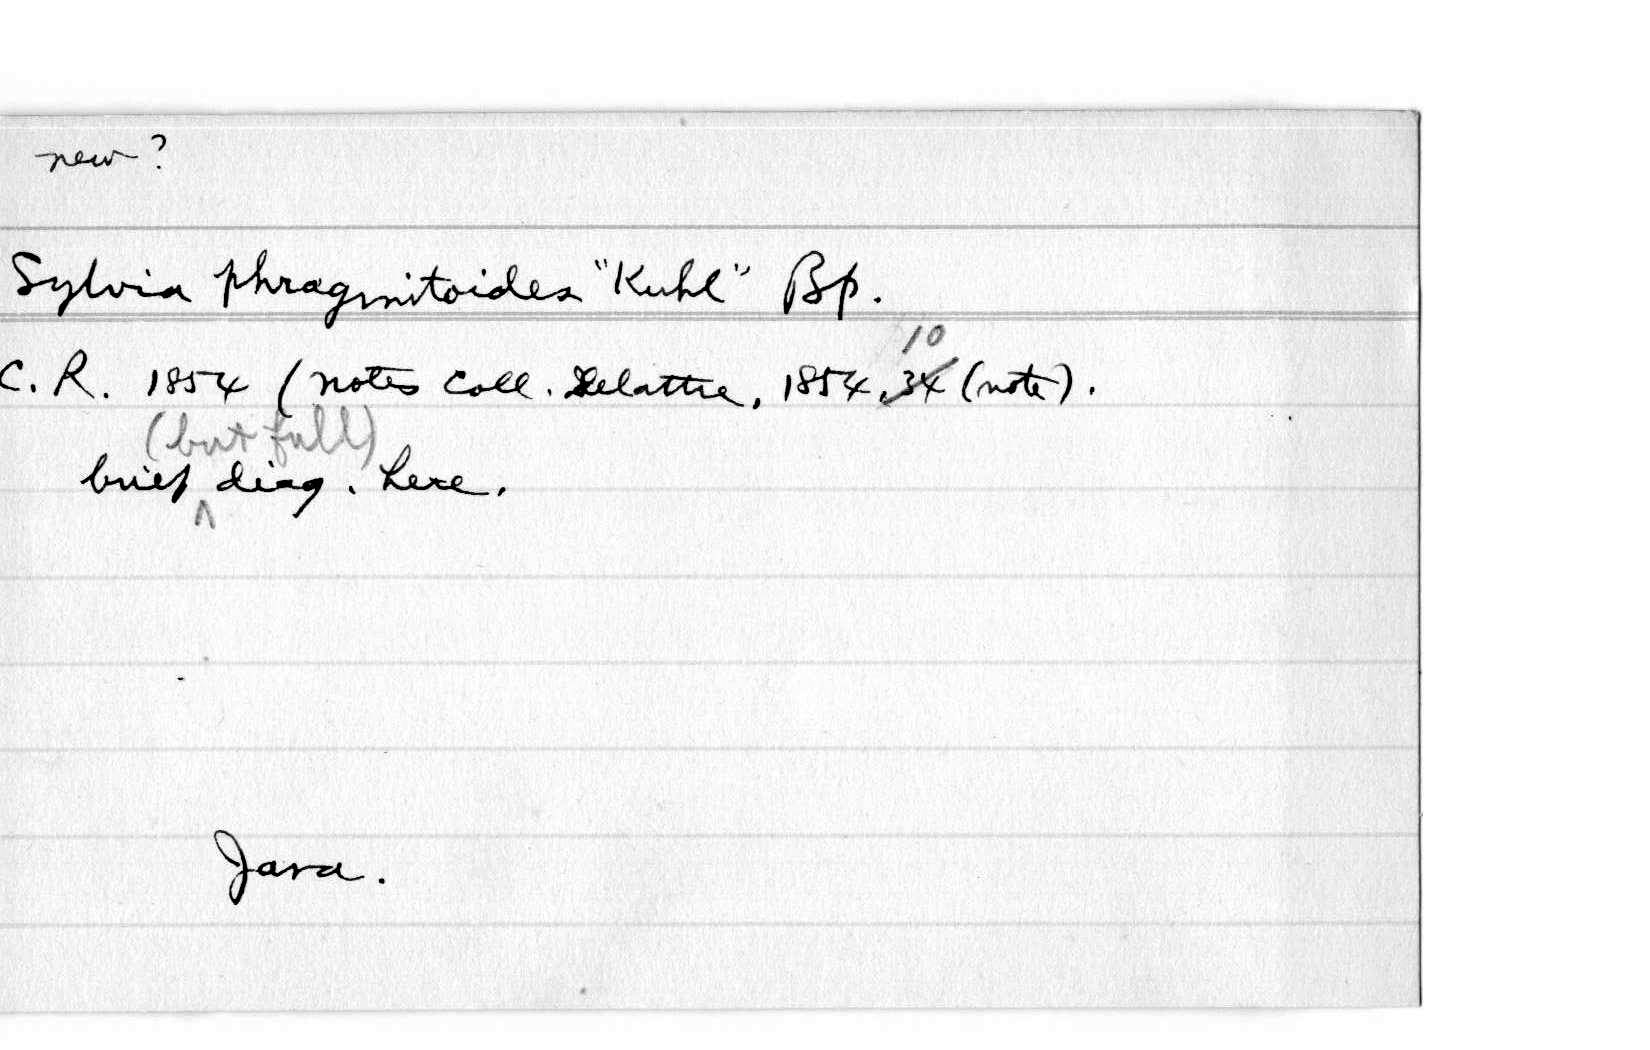 new?
Sylvia phragmitoides "Kuhl" Bp.
10
C. R. 1854 (notes Coll. Delattre, 1854, 34 (note).
(but full)
brief ^ diag. here.
Java.